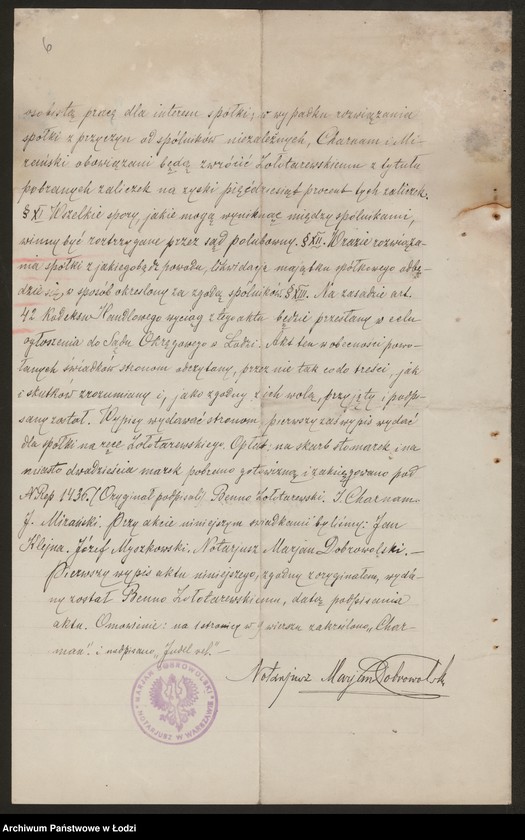 6
osobistą pracę dla interesu spółki; w wypadku rozwiązania
spółki z przyczyn od spólników niezależnych, Charnam i Mi-
rański obowiązani będą zwrócić Zołotarewskiemu z tytułu
pobranych zaliczek na zyski pięćdziesiąt procent tych zaliczek.
§ XI Wszelkie spory, jakie mogą wyniknąć między spólnikami,
winny być roztrzygane przez sąd polubowny. § XII. W razie rozwiąza-
nia spółki z jakiegobądź powodu, likwidacja majątku spółkowego odbę-
dzie się, w sposób określony za zgodą spólników. § XIII. Na zasadzie art.
42 Kodeksu Handlowego wyciąg z tego aktu będzie przesłany w celu
ogłoszenia do Sądu Okręgowego w Łodzi. Akt ten w obecności powo-
łanych świadków stronom odczytany, przez nie tak co do treści, jak
i skutków zrozumiany i, jako zgodny z ich wolą, przyjęty i podpi-
sany został. Wypisy wydawać stronom, pierwszy zaś wypis wydać
dla spółki na ręce Zołotarewskiego. Opłatę: na skarb sto marek i na
miasto dwadzieścia marek pobrano gotowizną i zaksięgowano pod
N Rep 1436. (Oryginał podpisali) Benno Zołotarewski. I. Charnam.
J. Mirański. Przy akcie niniejszym świadkami byliśmy: Jan
Klejna. Józef Myszkowski. Notarjusz Marjan Dobrowolski. —
Pierwszy wypis aktu niniejszego, zgodny z oryginałem, wyda-
ny został Benno Zołotarewskiemu, datą podpisania
aktu. Omówienie: na stronicy w wierszu zakreślono „Char-
man" i nadpisano „Judel
Notarjusz Marjan Dobrowolski
MARJAN DOBROWOLSKI
NOTARJUSZ W WARSZAWIE
Archiwum Państwowe w Łodzi